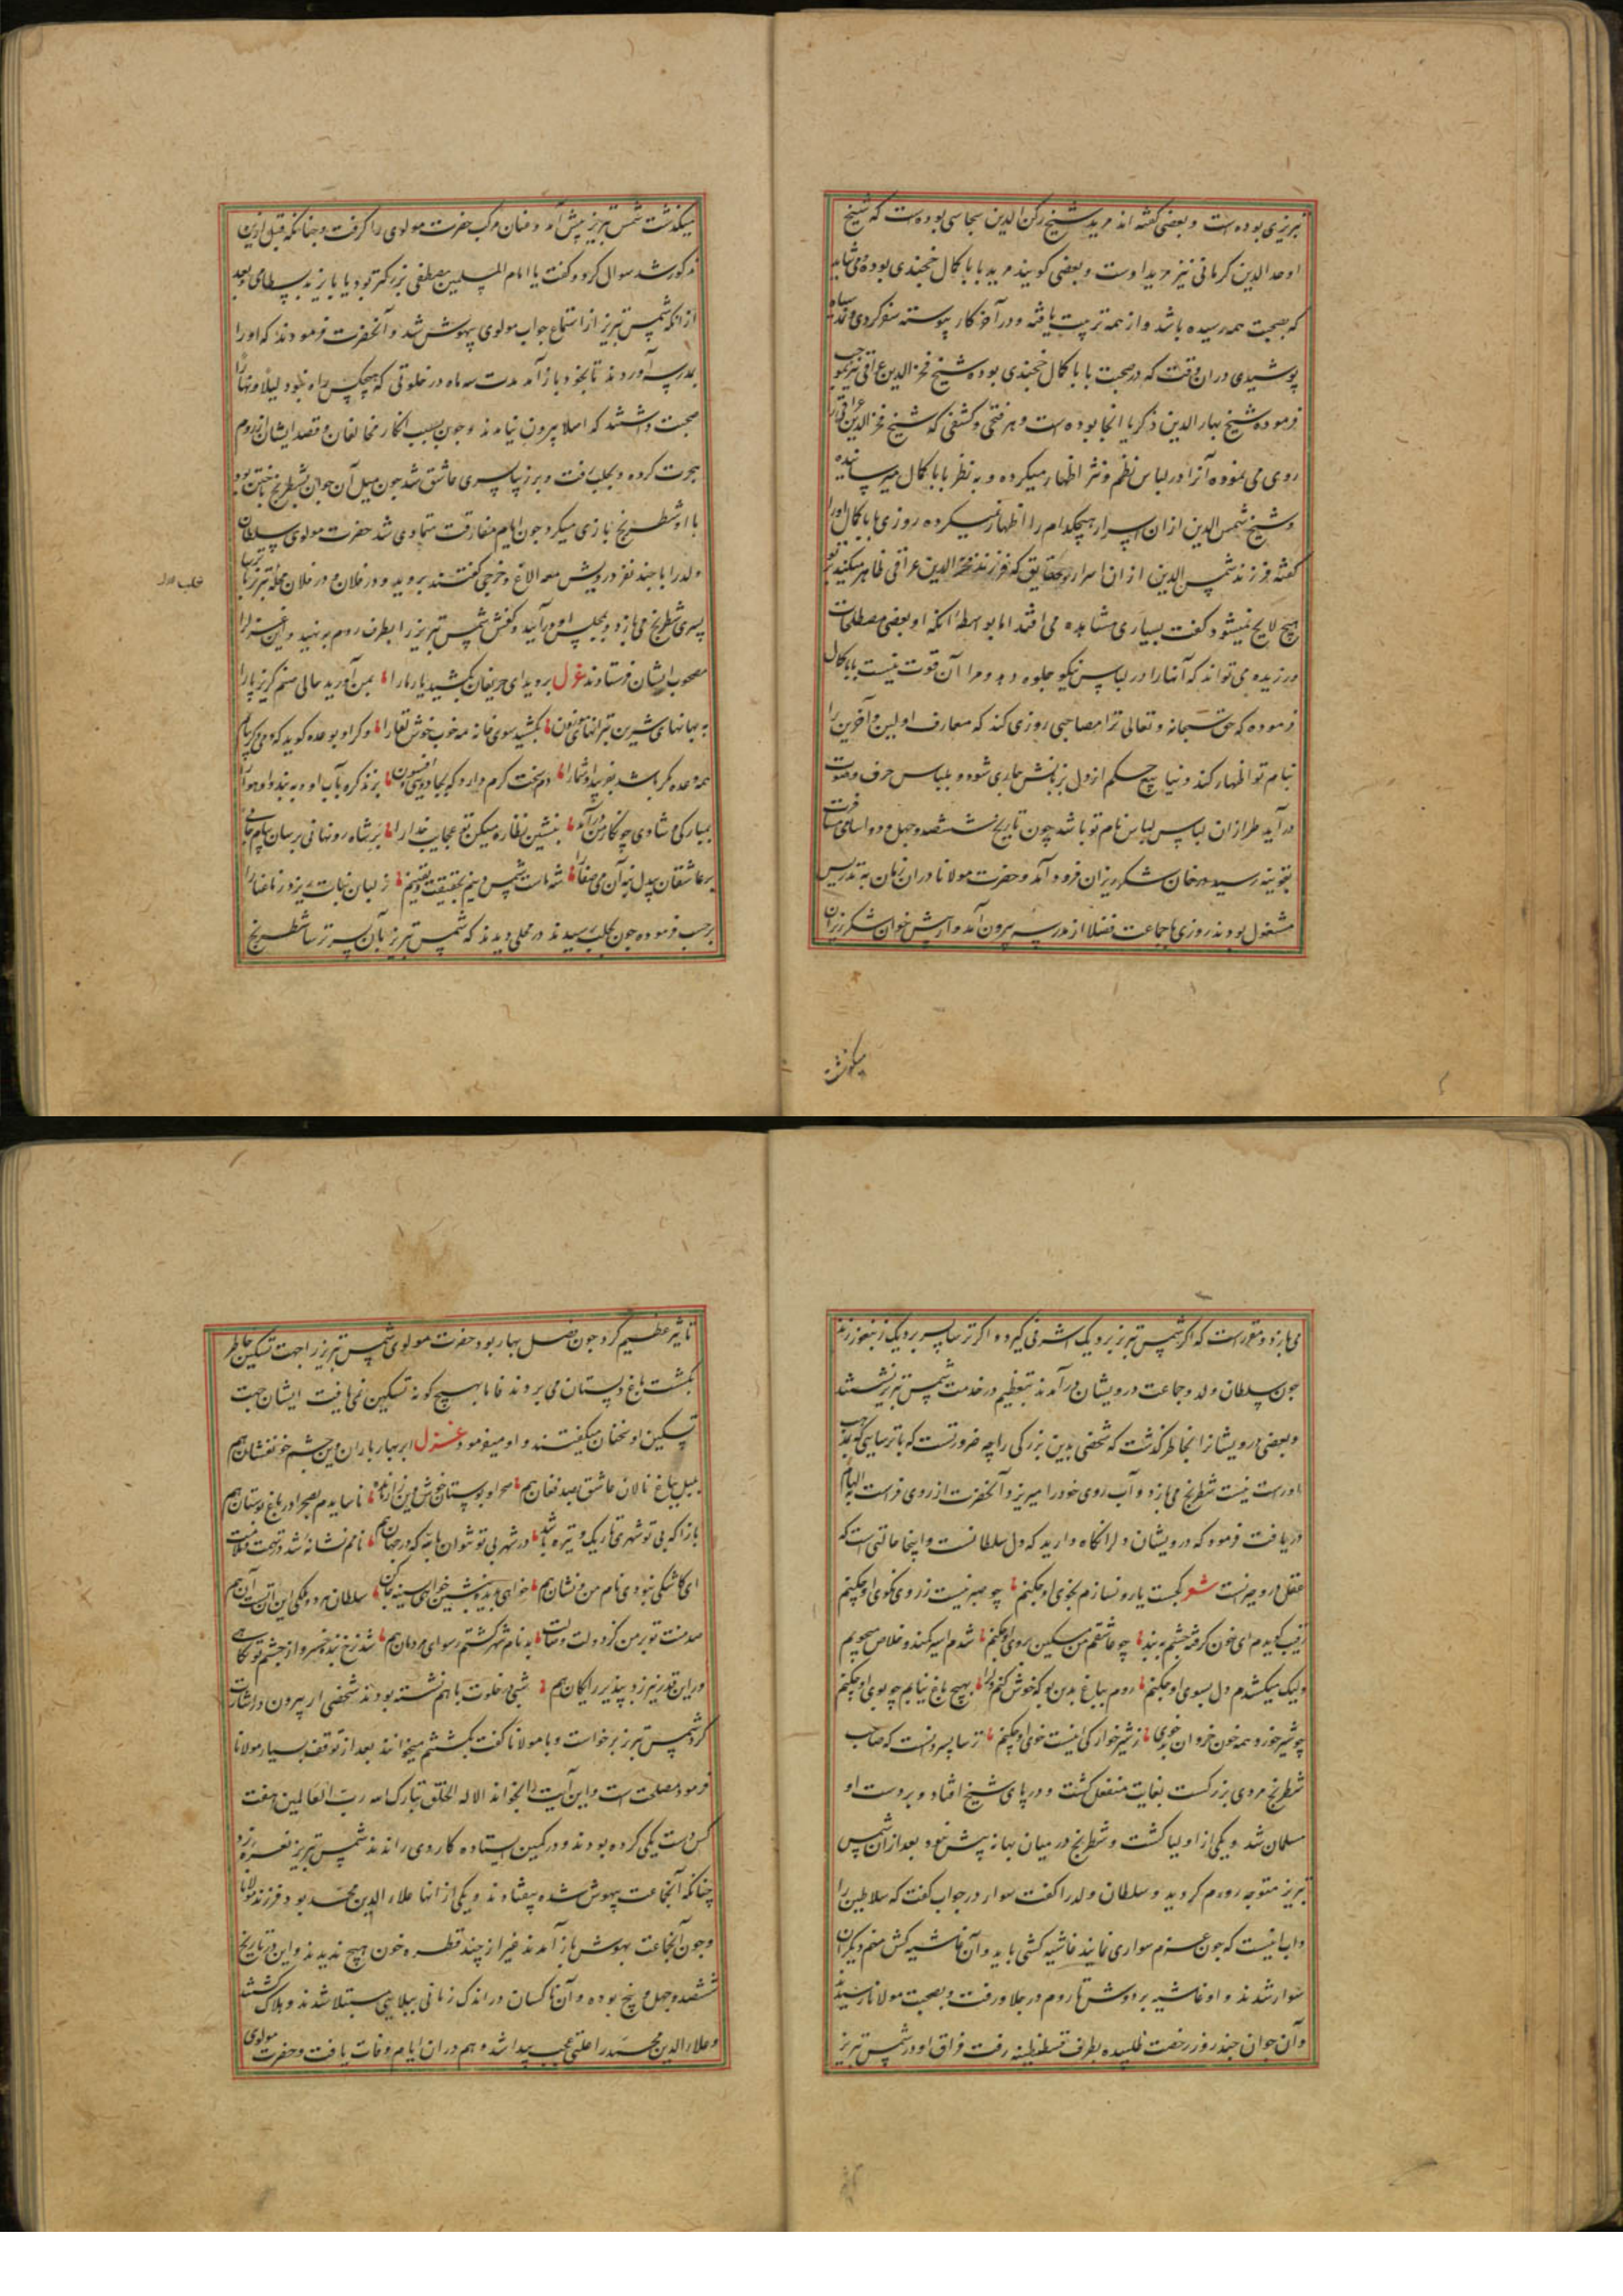 تبریزی بوده است و بعضی گفته اند مرید شیخ رکن الدین سجاسی بوده است که شیخ
اوحد الدین کرمانی نیز مرید اوست و بعضی گویند مرید بابا کمال خجندی بوده می شاید
که بصحبت همه رسیده باشد و از همه تربیت یافته و در آخر کار پیوسته سفر کردی نمد سیاه
پوشیدی در آن وقت که در صحبت بابا کمال خجندی بوده شیخ فخر الدین عراقی نیز بموجب
فرموده شیخ بهاء الدین ذکریا انجا بوده است و هر فتحی و کشفی که شیخ فخر الدین عراقی را
روی می نموده آنرا در لباس نظم و نثر اظهار میکرده و به نظر بابا کمال میرسانیده
و شیخ شمس الدین از ان اسرار هیچکدام را اظهار نمیکرده روزی بابا کمال اورا
گفته فرزند شمس الدین از ان اسرار و حقایق که فرزند فخر الدین عراقی ظاهر میکند بر تو
هیچ لایح نمیشود گفت بسیاری مشاهده می افتد اما بواسطه آنکه او بعضی مصطلحات
ورزیده می تواند که آنها را در لباس نیکو جلوه دهد و مرا آن قوت نیست بابا کمال
فرموده که حق سبحانه و تعالی ترا مصاحبی روزی کند که معارف اولین و آخرین را
بنام تو اظهار کند و ینابیع حکم از دل بر زبانش جاری شود و بلباس حرف و صوت
در آید طراز ان لباس نام تو باشد چون تاریخ ششصد و چهل و دو
بقونیه رسید در خان شکر ریزان فرود آمد و حضرت مولانا در ان زمان به تدریس
مشغول بودند روزی با جماعت فضلا از مدرسه بیرون آمد و از پیش خان شکر ریزان
میگذشت
میگذشت شمس تبریز پیش آمد و عنان مرکب حضرت مولوی را گرفت و چنانکه قبل ازین
مذکور شد سوال کرد و گفت یا امام المسلمین مصطفی بزرگتر بود یا بایزید بسطامی و بعد
از انکه شمس تبریز از استماع جواب مولوی بیهوش شد و آنحضرت فرمودند که اورا
بمدرسه آوردند تا بخود باز آمد مدت سه ماه در خلوتی که هیچکس راه نبود لیلا و نهارا
صحبت داشتند که اصلا بیرون نیامدند و چون بسبب انکار مخالفان و قصد ایشان از روم
هجرت کرده و بحلب رفت و بر ترسا پسری عاشق شد چون میل آن جوان بشطرنج باختن بود
با او شطرنج بازی میکرد چون ایام مفارقت متمادی شد حضرت مولوی سلطان
ولد را با چند نفر درویش معه الاغ و خرجی گفتند بروید و در فلان و در فلان محله تبریز با ترسا
پسری شطرنج می بازد و بمجلس او در آیید و کفش شمس تبریز را بطرف روم بنهید و این غزل را
مصحوب ایشان فرستادند غزل بروید ای حریفان بکشید یار مارا بمن آورید حالی صنم گریزپارا
به بهانهای شیرین بترانهای موزون بکشید سوی خانه مه خوب خوش لقارا و گر او بوعده گوید که دمی دگر بیایم
همه وعده مکر باشد بفریبد او شمارا دم سخت گرم دارد که بجادویی و افسون بزند گره بر آب او و ببندد او هوارا
بمبارکی و شادی چو نگار من در آید بنشین نظاره میکن تو عجایب خدارا
شمس دینم بحقیقت و یقینم
برحسب فرموده چون بحلب رسیدند در محلی دیدند که شمس تبریز بآن پسر ترسا شطرنج
می بازد و مقرر است که اگر شمس تبریز برد یک اشرفی گیرد و اگر ترسا پسر برد یک
چون سلطان ولد و جماعت درویشان در آمدند بتعظیم در خدمت شمس تبریز نشستند
و بعضی درویشانرا بخاطر گذشت که شخصی بدین بزرگی را چه ضرورتست که با ترسایی که مذهب
او درست نیست شطرنج می بازد و آب روی خود را میریزد آنحضرت از روی فراست به الهام
دریافت فرمود که درویشان دل را نگاه دارید که دل سلطانست و اینجا حالتی است که
عقل درو حیرانست شعر بجست یار و نسازم بخوی او چکنم چو صبر نیست ز روی نکوی او چکنم
رقیب گویدم ای خون گرفته چشم ببند چو عاشقم من مسکین بروی او چکنم شدم اسیر کمند و خلاص میجویم
ولیک میکشدم دل بسوی او چکنم روم بباغ بدین بو که خوش کنم دل را بهیچ باغ نیابم چو بوی او چکنم
چو شیر خورد همه خون خسرو ز شیرخوارگی اینست خوی او چکنم ترسا پسر دانست که صاحب
شطرنج مردی بزرگست بغایت منفعل گشت و در پای شیخ افتاد و بر دست او
مسلمان شد و یکی از اولیا گشت و شطرنج در میان بهانه بیش نبود بعد ازان شمس
تبریز متوجه روم گردید و سلطان ولد را گفت سوار در جواب گفت که سلاطین را
داب اینست که چون عزم سواری نمایند غاشیه کشی باید و آن غاشیه کش منم دیگران
سوار شدند و او غاشیه بر دوش تا روم در جلو رفت و بصحبت مولانا رسیدند
و آن جوان چند روز رخصت طلبیده بطرف قسطنطنیه رفت فراق او در شمس تبریز
تاثیر عظیم کرد چون فصل بهار بود حضرت مولوی شمس تبریز را جهت تسکین خاطر
بگشت باغ و بستان می بردند فاما بهیچ گونه تسکین نمی یافت ایشان جهت
تسکین او سخنان میگفتند و او میفرمود غزل ابر بهار باران وین چشم خونفشان هم
بلبل بباغ نالان عاشق بصد فغان هم صحرا و بوستان خوش ناساید دم بصحرا در باغ و بوستان هم
باز آ که بی تو شهری تاریک و تیره باشد در شهر بی تو نتوان بلکه در جهان هم نامم نشانه شد
ای کاشکی نبودی نام من و نشان هم
صد منت تو بر من گر دولت وصالت بدنام شهر گشتم رسوای مردمان هم شد نرخ بنده خسرو از چشم تو نگاهی
ور این قدر نیرزد بپذیر رایگان هم شبی در خلوت با هم نشسته بودند شخصی از بیرون در اشارت
کرد شمس تبریز برخواست و با مولانا گفت بکشتنم میخوانند بعد از توقف بسیار مولانا
فرمود مصلحت است و این آیت را بخواند الا له الخلق تبارک الله رب العالمین و هفت
کس دست یکی کرده بودند و در کمین ایستاده کاردی راندند شمس تبریز نعره زد
چنانکه آنجماعت بیهوش شده بیفتادند و یکی از انها علاء الدین محمد بود فرزند مولانا
و چون آنجماعت بهوش باز آمدند غیر از چند قطره خون هیچ ندیدند و این در تاریخ
ششصد و چهل و پنج بوده و آن ناکسان در اندک زمانی ببلایی مبتلا شدند و هلاک گشتند
و علاء الدین محمد را علتی عجب پیدا شد و هم در ان ایام وفات یافت و حضرت مولوی